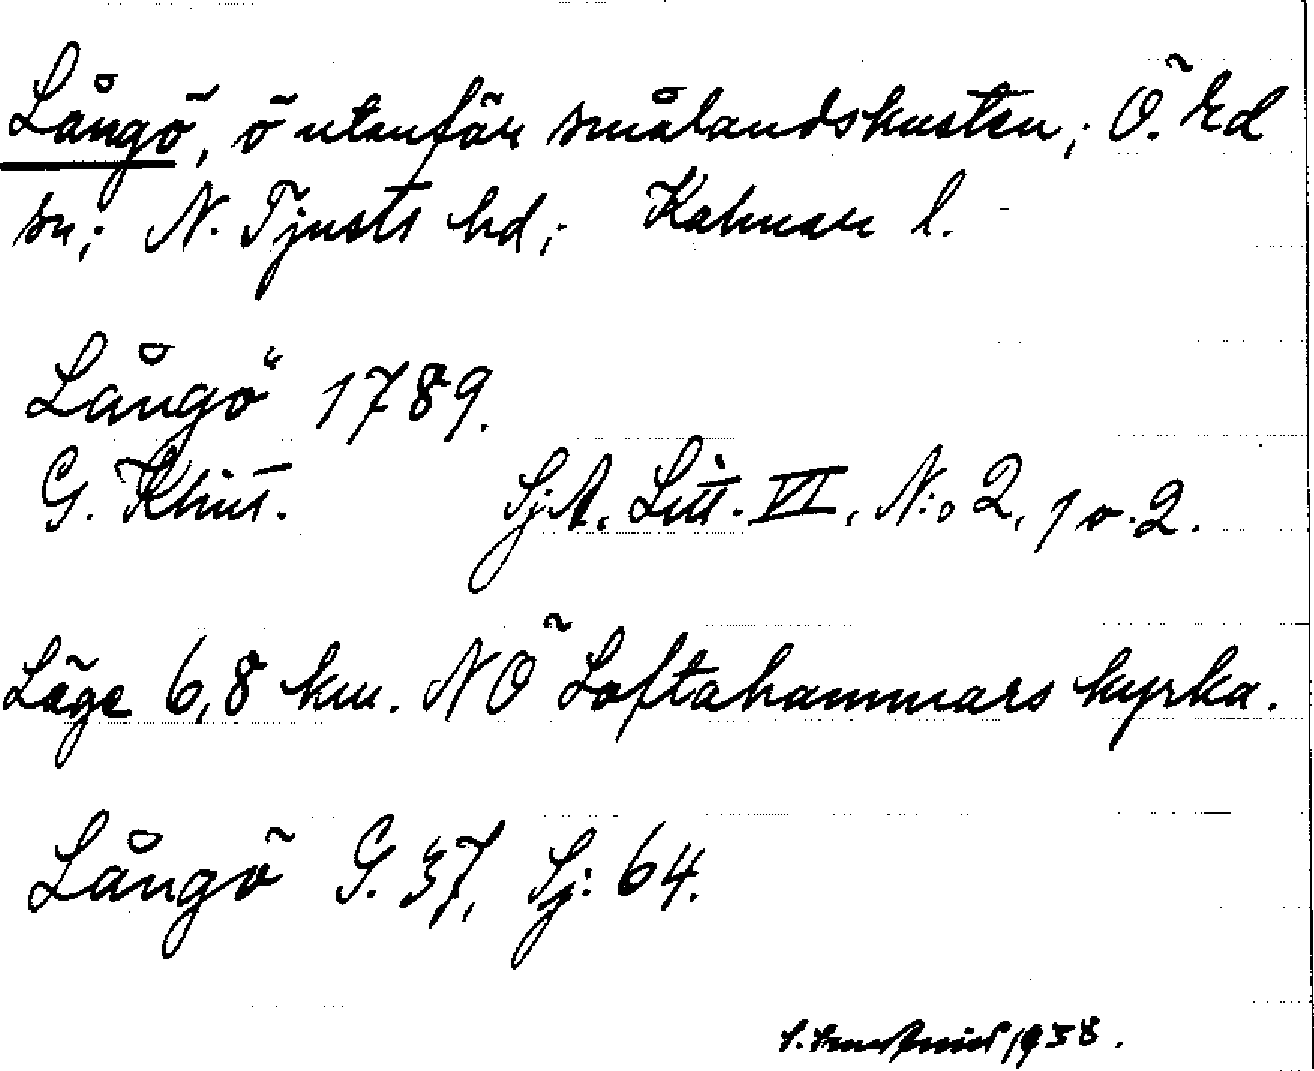 Långö, ö utanför smålandskusten; Ö. Ed
sn; N. Tjusts hd; Kalmar l.
Långö 1789.
G. Klint. Sj.A. Litt. VI, N:o 2, 1 o. 2.
Läge 6,8 km. NÖ Loftahammars kyrka.
Långö G. 37, Sj: 64.
1938.